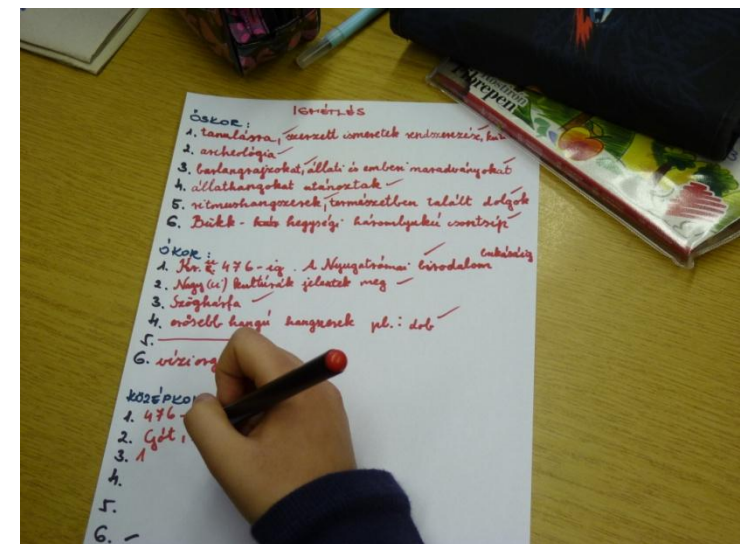 ISMÉTLÉS
ŐSKOR:
1. tanulásra, szerzett ismeretek rendszerezés,
2. archeológia
3. barlangrajzokat, állati és emberi maradványokat
4. állathangokat utánoztak
5. ritmushangszerek, természetben talált dolgok
6. Bükk - hegységi háromlyukú csontsíp
ÓKOR:
1. Kr. 476-ig. A Nyugatrómai birodalom bukásáig
2. Nagy kultúrák jelentek meg
3. Szöghárfa
4. erősebb hangú hangszerek pl.: dob
5.
6. vízi
KÖZÉPKO
1. 476
2. Gót,
3. 1
4.
5.
6. -
képen